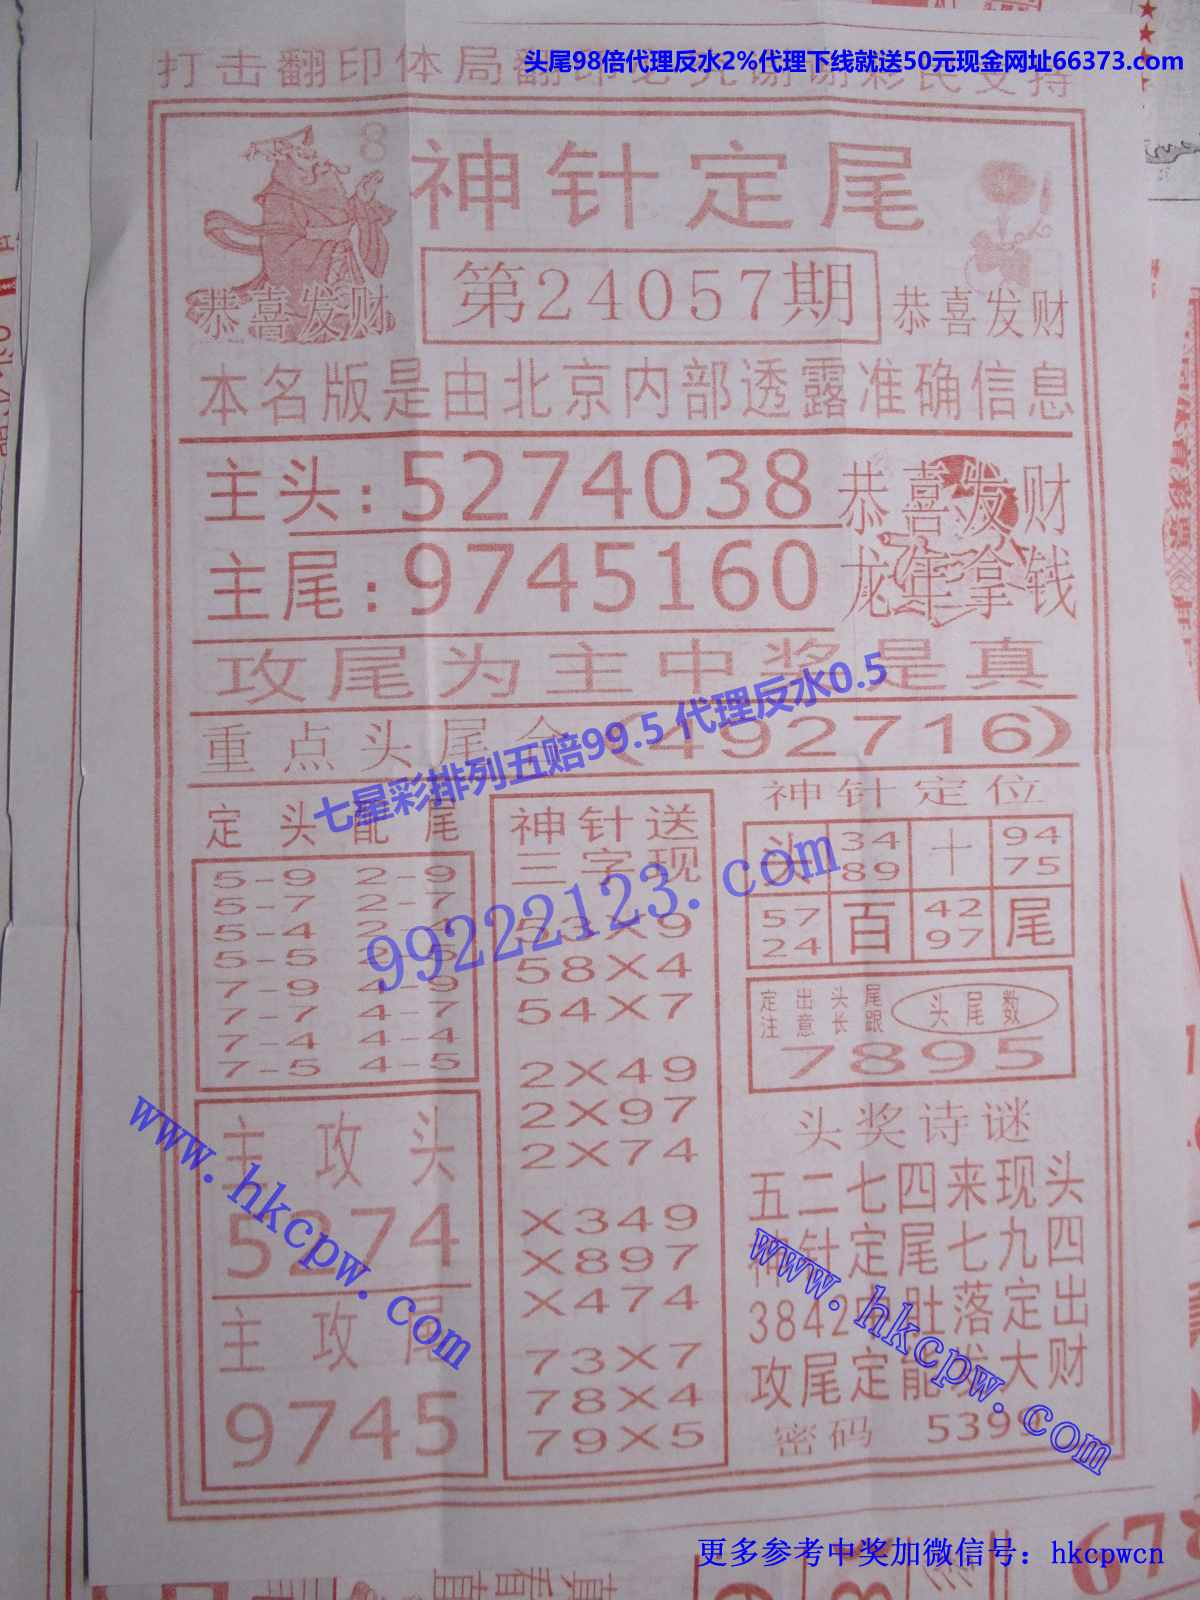 头尾98倍代理反水2%代理下线就送50元现金网址66373.com
打击翻印体局翻印必究谢谢彩民支持
8
神针定尾
第24057期
恭喜发财
恭喜发财
本名版是由北京内部透露准确信息
主头:5274038
恭喜发财
主尾:9745160
龙年拿钱
攻尾为主中奖是真
重点头尾合(492716)
七星彩排列五赔99.5 代理反水0.5
99222123.com
定头配尾
5-9 2-9
5-7 2-7
5-4 2-4
5-5 2-5
7-9 4-9
7-7 4-7
7-4 4-4
7-5 4-5
主攻头
5274
主攻尾
9745
神针送
三字现
53X9
58X4
54X7
2X49
2X97
2X74
X349
X897
X474
73X7
78X4
79X5
神针定位
头 3489 十 9475
5724 百 4297 尾
定出头尾
注意长跟
头尾数
7895
头奖诗谜
五二七四来现头
神针定尾七九四
3842中肚落定出
攻尾定能发大财
密码 5399
www.hkcpw.com
www.hkcpw.com
更多参考中奖加微信号：hkcpwcn
67